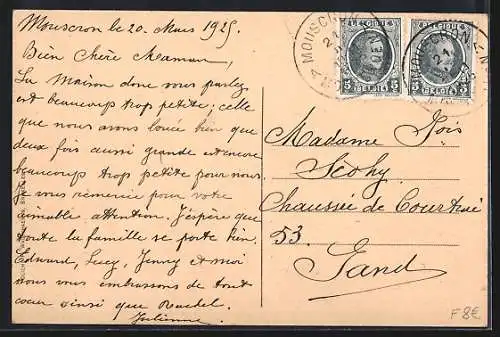 Mouscron le 20. Mars 1925.
Bien Chère Maman,
La Maison donc vous parlez
est beaucoup trop petite; celle
que nous avons louée bien que
deux fois aussi grande est encore
beaucoup trop petite pour nous.
Je vous remercie pour votre
aimable attention. J'éspère que
toute la famille se porte bien.
Edward, Lucy, Jenny et moi
nous vous embrassons de tout
cœur ainsi que
Julienne.
MOUSCRON
BELGIQUE
5 BELGIË 5
BELGIQUE
5 BELGIË 5
MOUSCRON
Madame
Scohy
Chaussée de Courtrai
53.
Gand
F 8€